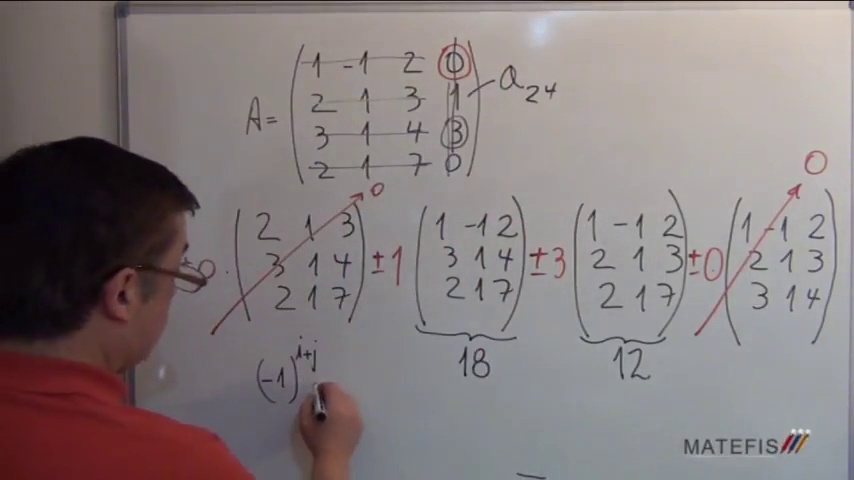 A = ( 1 -1 2 0
2 1 3 1
3 1 4 3
2 1 7 0 ) a24
0
0
0 · ( 2 1 3
3 1 4
2 1 7 ) ± 1 ( 1 -1 2
3 1 4
2 1 7 ) ± 3 ( 1 -1 2
2 1 3
2 1 7 ) ± 0 ( 1 -1 2
2 1 3
3 1 4 )
18 12
(-1)^i+j
MATEFIS